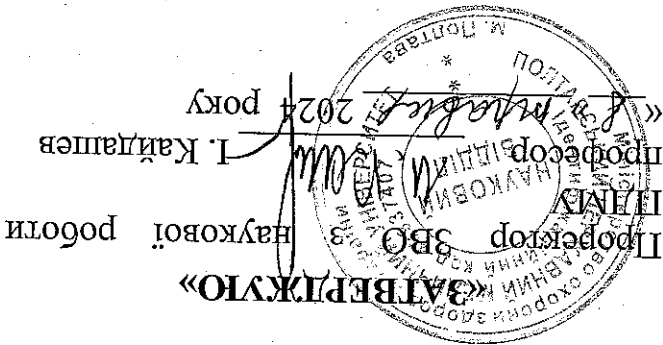 «ЗАТВЕРДЖУЮ»
Проректор ЗВО з наукової роботи
ПДМУ
професор І. Кайдашев
« 8 » травня 2024 року
НАУКОВИЙ
ВІДДІЛ
м. Полтава